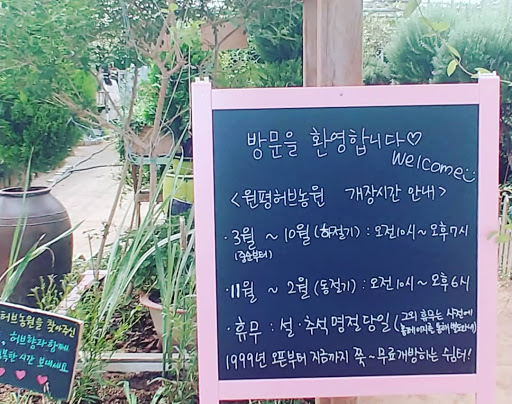 방문을 환영합니다♡
Welcome
<원평허브농원 개장시간 안내>
· 3월 ~ 10월 (하절기) : 오전10시 ~ 오후7시
(중순부터)
· 11월 ~ 2월 (동절기) : 오전10시 ~ 오후6시
· 휴무 : 설 · 추석명절당일 (그외 휴무는 사전에
홈페이지를 통해
1999년 오픈부터 지금까지 쭉~ 무료개방하는 쉼터!
허브농원을 찾아주신
허브향과 함께
시간 보내세요